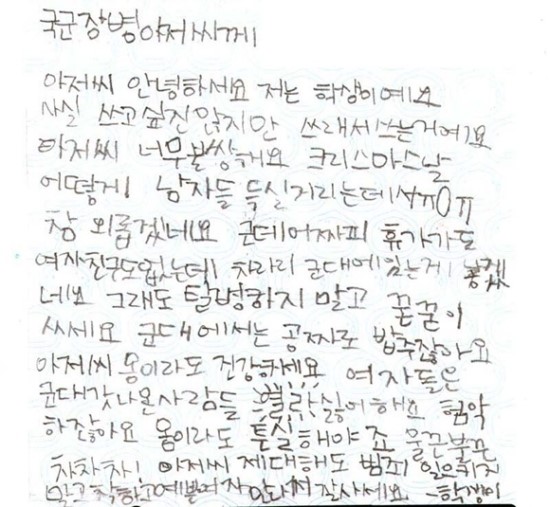 국군장병아저씨께
아저씨 안녕하세요 저는 학생이예요
사실 쓰고싶진 않지만 쓰래서쓰는거예요
아저씨 너무불쌍해요 크리스마스날
어떻게 남자들 득실거리는데서ㅠOㅠ
참 외롭겠네요 근데어짜피 휴가가도
여자친구도없는데 차라리 군대에있는게 낳겠
네요 그래도 탈병하지 말고 꾿꾿이
싸세요 군대에서는 공짜로 밥주잖아요
아저씨 몸이라도 건강하세요 여자들은
군대갓나온사람들 열라싫어해요 험악
하잖아요 몸이라도 튼실해야죠 울끈불끈
차차차! 아저씨 제대해도 범죄 일으키지
말고 착하고예쁜여자 만나서 잘사세요 -학생이